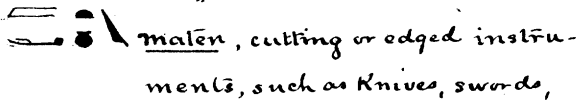 maten, cutting or edged instru-
ments, such as Knives, swords,